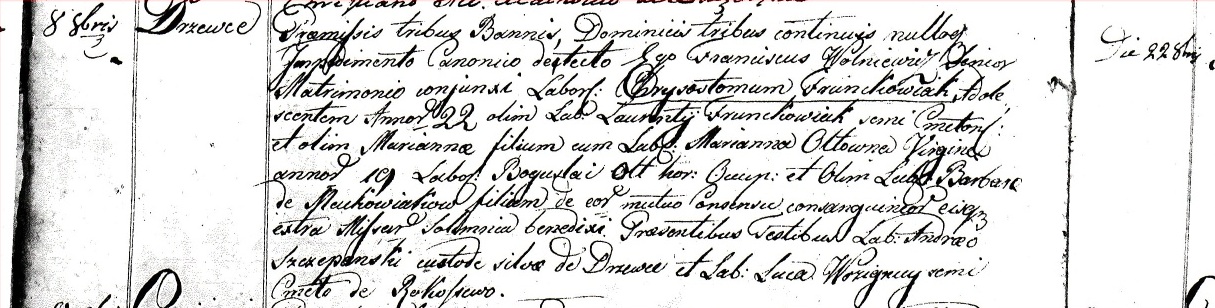 8 8bris
Drzewce
Præmissis tribus Bannis, Dominicis tribus continuis nulloq
Impedimento Canonico detecto Ego Franciscus Wolniewicz Senior
Matrimonio conjunxi Labors: Chrysostomum Frunckowiak Adole
scentem Annor 22 olim Lab: Laurentij Frunckowiak semi Cmetons:
et olim Mariannæ filium cum Lab: Marianna Ottowna Virgine
annor 19 Labor: Boguslai Ott hor: Occup: et Olim Lab: Barbaræ
de Muchowiakow filiam de eor mutuo Consensu consanguineor eisq
extra Missar Solemnia benedixi. Præsentibus Testibus Lab: Andræo
Szczepanski custode silvæ de Drzewce et Lab: Luca semi
Cmeto de Rokossowo.
Die 22 8bris